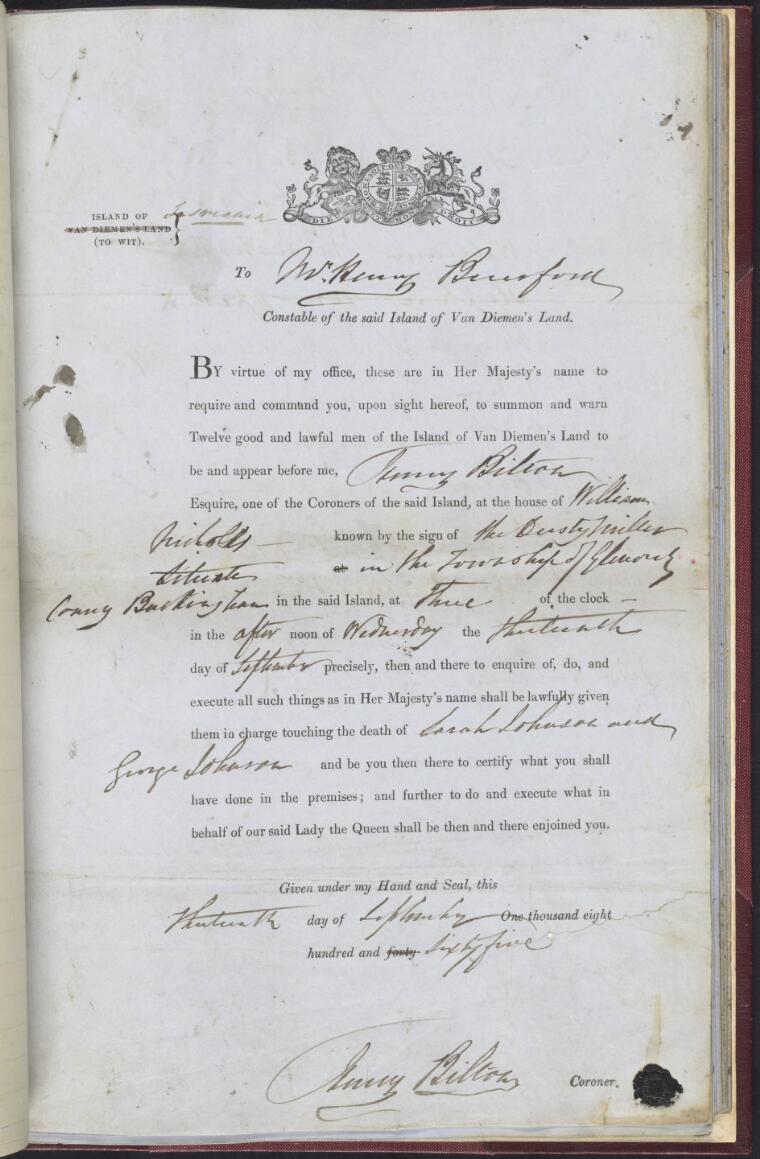 DIEU ET MON DROIT
ISLAND OF Tasmania
VAN DIEMEN'S LAND
(TO WIT).
To Mr. Henry Beresford
Constable of the said Island of Van Diemen's Land.
BY virtue of my office, these are in Her Majesty's name to
require and command you, upon sight hereof, to summon and warn
Twelve good and lawful men of the Island of Van Diemen's Land to
be and appear before me, Henry Bilton
Esquire, one of the Coroners of the said Island, at the house of William
Nicholls — known by the sign of the Dusty Miller
situate at in the Township of Glenorchy
County Buckingham in the said Island, at Three of the clock —
in the after noon of Wednesday the thirteenth
day of September precisely, then and there to enquire of, do, and
execute all such things as in Her Majesty's name shall be lawfully given
them in charge touching the death of Sarah Johnson and
George Johnson and be you then there to certify what you shall
have done in the premises; and further to do and execute what in
behalf of our said Lady the Queen shall be then and there enjoined you.
Given under my Hand and Seal, this
thirteenth day of September One thousand eight
hundred and forty sixty five
Henry Bilton Coroner.